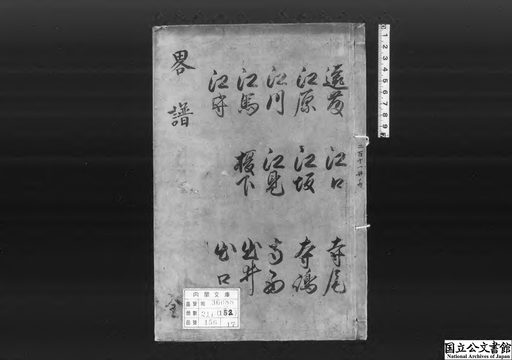 畧譜
全
遠藤 江口 寺尾
江原 江坂 寺嶋
江川 江見 寺西
江馬 榎下 出井
江守 出口
内閣文庫
番號
冊數
函號
36088
152
156
17
国立公文書館
National Archives of Japan